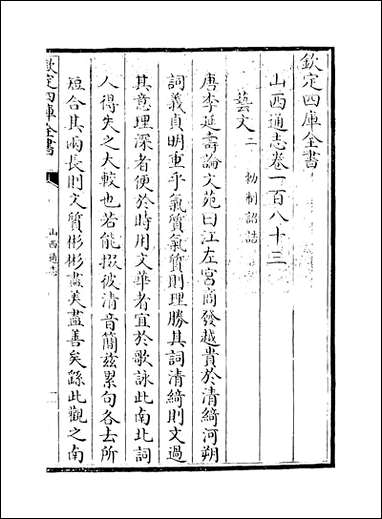 欽定四庫全書
山西通志卷一百八十三
藝文二 勅制詔誥
唐李延壽論文苑曰江左宮商發越貴於清綺河朔
詞義貞明重乎氣質氣質則理勝其詞清綺則文過
其意理深者便於時用文華者宜於歌詠此南北詞
人得失之大較也若能掇彼清音簡兹累句各去所
短合其兩長則文質彬彬盡美盡善矣繇此觀之南
欽定四庫全書
山西通志